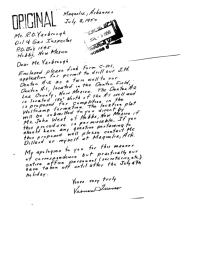 ORIGINAL
Magnolia, Arkansas
July 3, 1950
Mr. R.O. Yarbrough
Oil & Gas Inspector
P.O. Box
Hobbs, New Mexico
Dear Mr. Yarbrough
Enclosed please find form C-101,
application for permit to drill
as a twin well to our
located in the Denton Field,
Lea County, New Mexico. The Denton
is located 100' South of the #1 well and
is proposed for completion in the
Wolfcamp formation. The location plat
will be submitted to you direct by
Mr. John West of Hobbs, New Mexico if
this procedure is permissible. If you
should have any question pertaining to
this proposed well please contact Mr.
Dillard or myself at Magnolia, Ark.
My apologies to you for this manner
of correspondence but practically our
entire office personnel (secretaries, etc.)
have taken off until after the July 4th
holiday.
Yours very truly